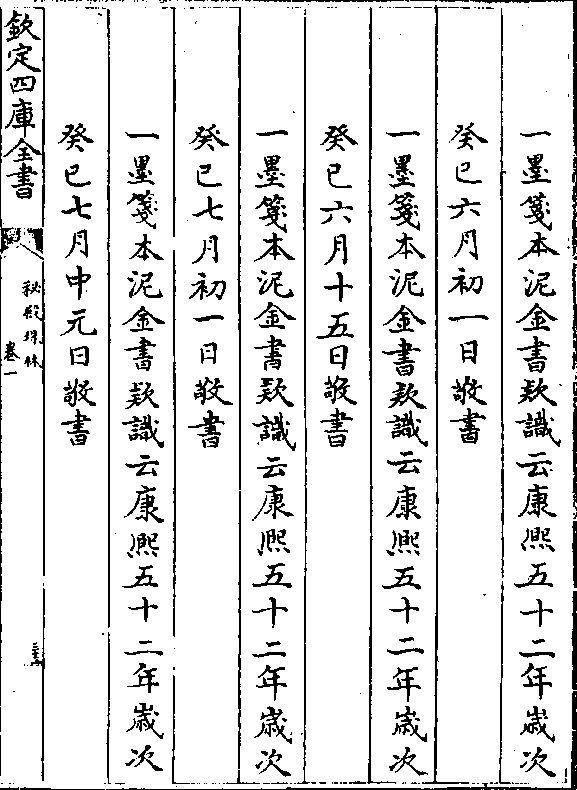 一墨箋本泥金書款識云康熙五十二年嵗次
癸巳六月初一日敬書
一墨箋本泥金書款識云康熙五十二年嵗次
癸巳六月十五日敬書
一墨箋本泥金書款識云康熙五十二年嵗次
癸巳七月初一日敬書
一墨箋本泥金書款識云康熙五十二年嵗次
癸巳七月中元日敬書
欽定四庫全書
秘殿珠林
卷一